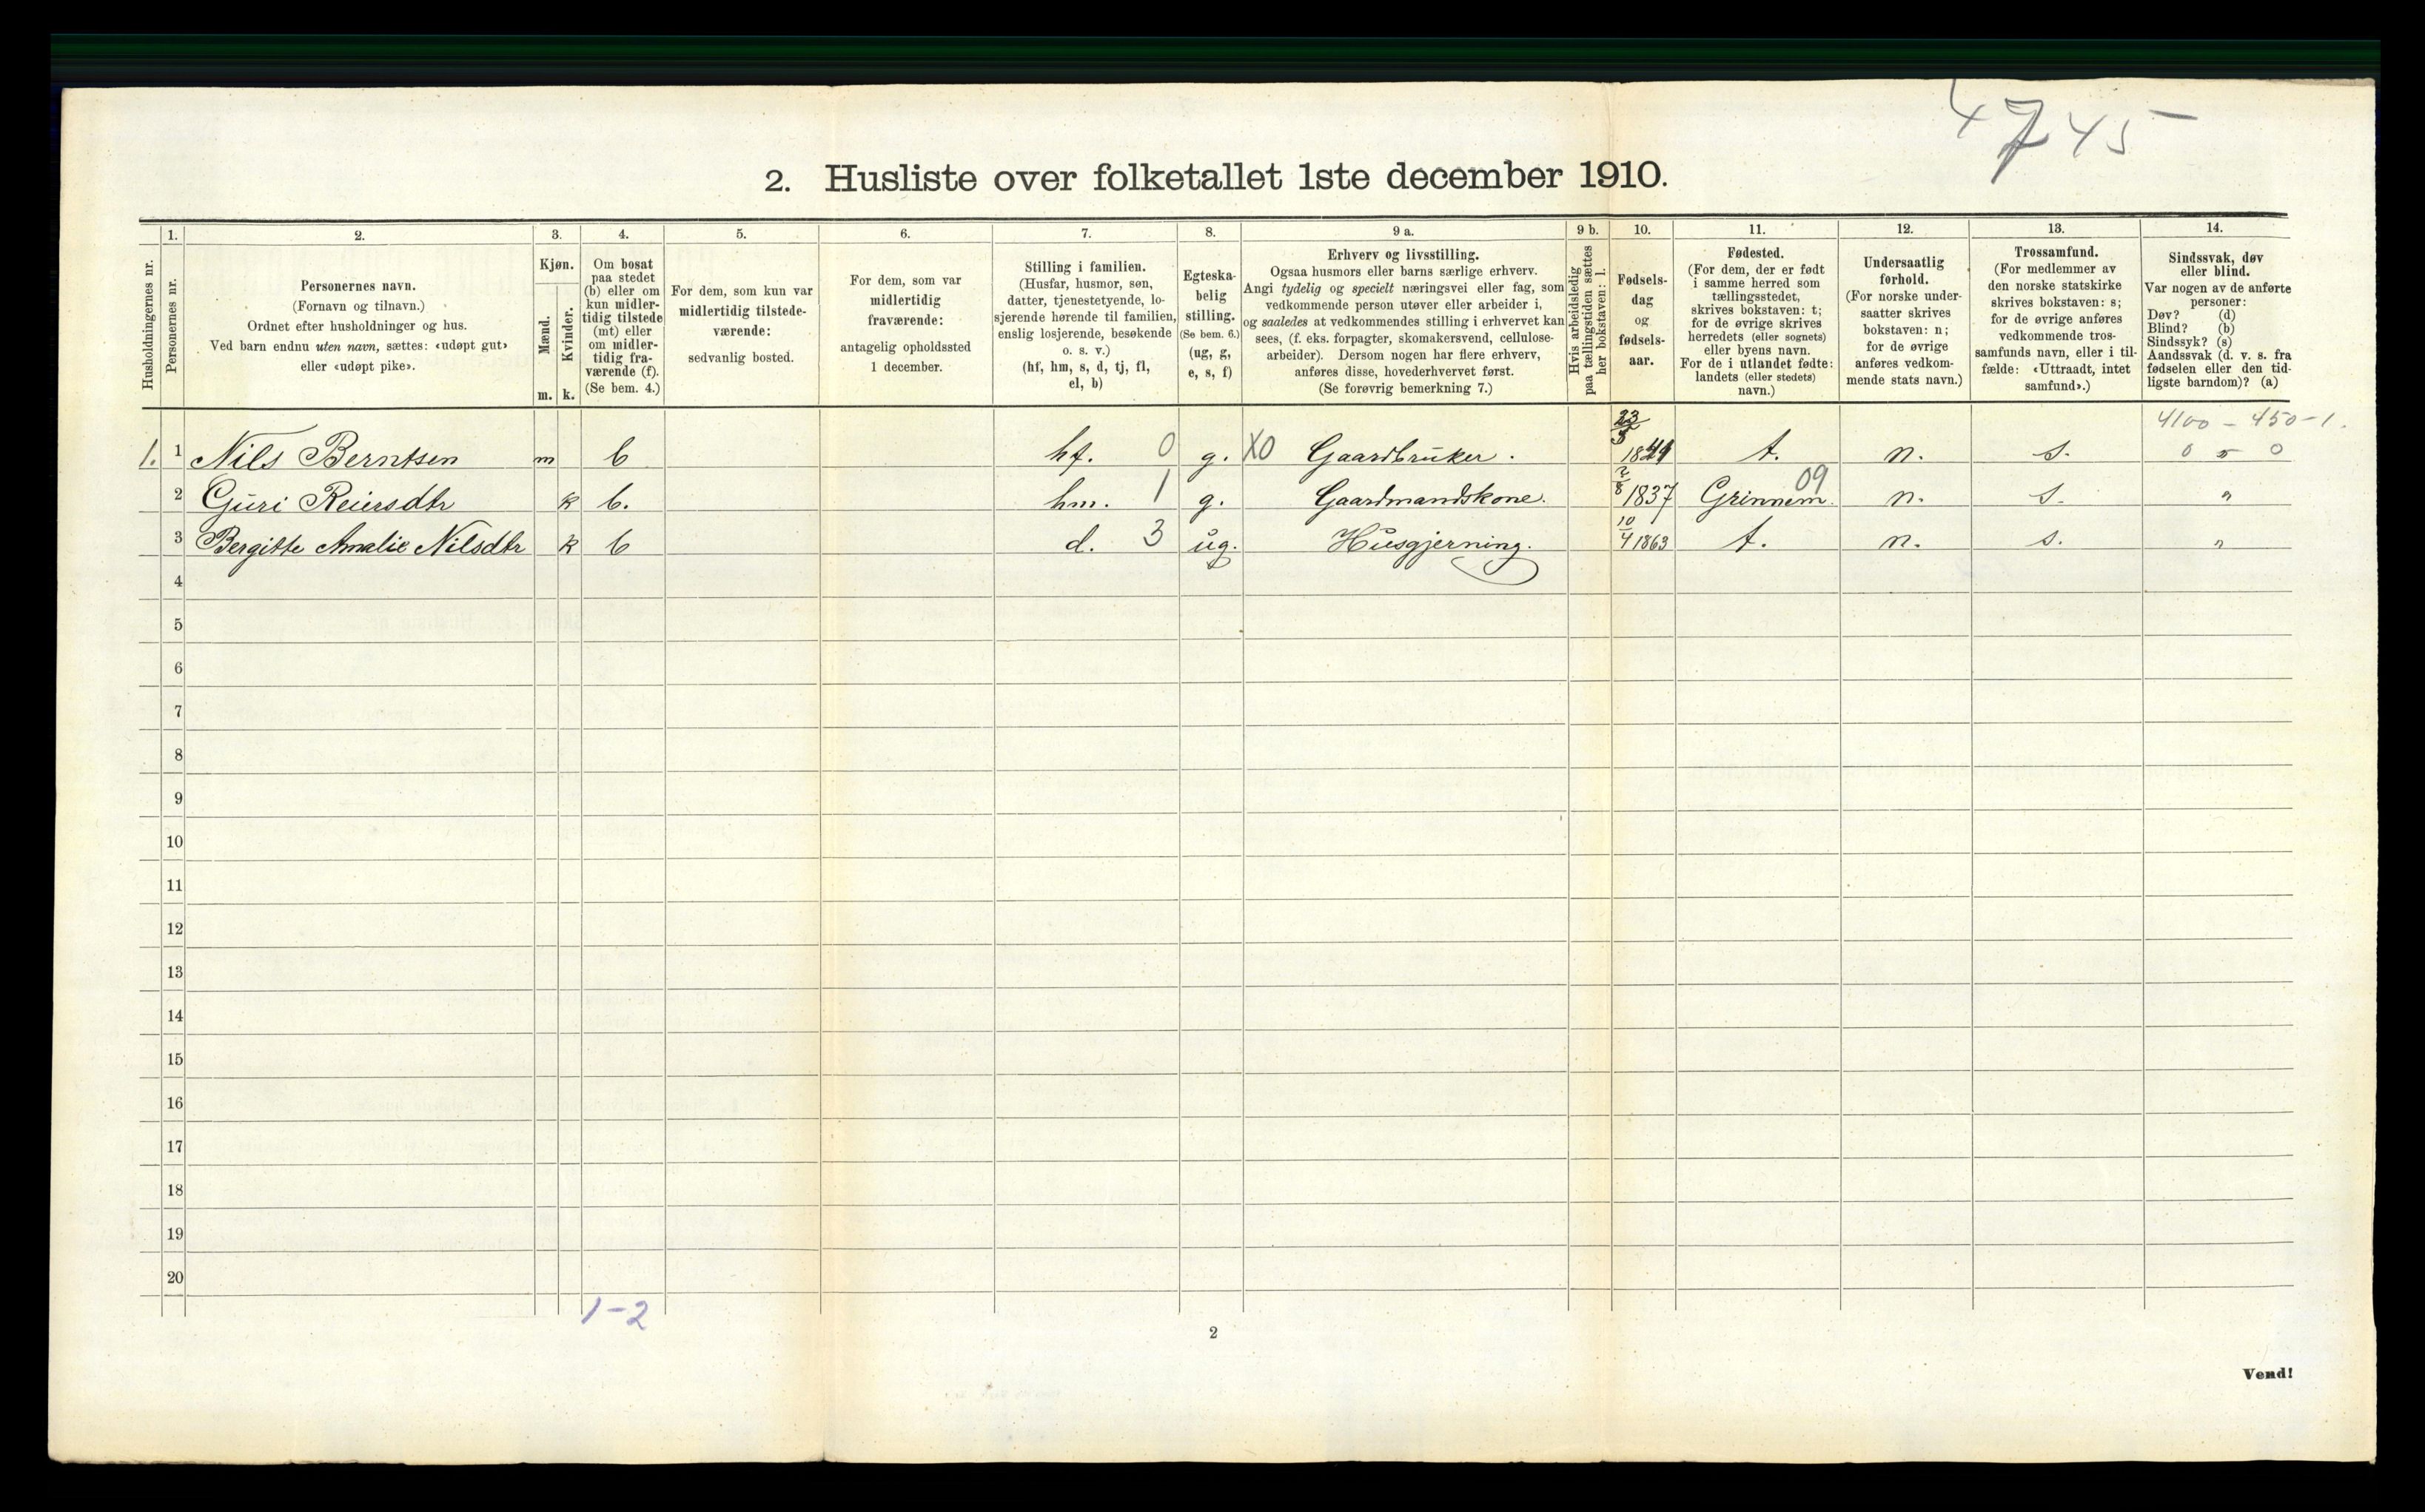 4745
2. Husliste over folketallet 1ste december 1910.
Husholdningernes nr.
1.
Personernes nr.
2.
Personernes navn.
(Fornavn og tilnavn.)
Ordnet efter husholdninger og hus.
Ved barn endnu uten navn, sættes: «udøpt gut»
eller «udøpt pike».
3.
Kjøn.
Mænd.
Kvinder.
m. k.
4.
Om bosat
paa stedet
(b) eller om
kun midler-
tidig tilstede
(mt) eller
om midler-
tidig fra-
værende (f).
(Se bem. 4.)
5.
For dem, som kun var
midlertidig tilstede-
værende:
sedvanlig bosted.
6.
For dem, som var
midlertidig
fraværende:
antagelig opholdssted
1 december.
7.
Stilling i familien.
(Husfar, husmor, søn,
datter, tjenestetyende, lo-
sjerende hørende til familien,
enslig losjerende, besøkende
o. s. v.)
(hf, hm, s, d, tj, fl,
el, b)
8.
Egteska-
belig
stilling.
(Se bem. 6.)
(ug, g,
e, s, f)
9 a.
Erhverv og livsstilling.
Ogsaa husmors eller barns særlige erhverv.
Angi tydelig og specielt næringsvei eller fag, som
vedkommende person utøver eller arbeider i,
og saaledes at vedkommendes stilling i erhvervet kan
sees, (f. eks. forpagter, skomakersvend, cellulose-
arbeider). Dersom nogen har flere erhverv,
anføres disse, hovederhvervet først.
(Se forøvrig bemerkning 7.)
9 b.
Hvis arbeidsledig
paa tællingstiden sættes
her bokstaven: l.
10.
Fødsels-
dag
og
fødsels-
aar.
11.
Fødested.
(For dem, der er født
i samme herred som
tællingsstedet,
skrives bokstaven: t;
for de øvrige skrives
herredets (eller sognets)
eller byens navn.
For de i utlandet fødte:
landets (eller stedets)
navn.)
12.
Undersaatlig
forhold.
(For norske under-
saatter skrives
bokstaven: n;
for de øvrige
anføres vedkom-
mende stats navn.)
13.
Trossamfund.
(For medlemmer av
den norske statskirke
skrives bokstaven: s;
for de øvrige anføres
vedkommende tros-
samfunds navn, eller i til-
fælde: «Uttraadt, intet
samfund».)
14.
Sindssvak, døv
eller blind.
Var nogen av de anførte
personer:
Døv? (d)
Blind? (b)
Sindssyk? (s)
Aandssvak (d. v. s. fra
fødselen eller den tid-
ligste barndom)? (a)
4100 - 450-1.
1. 1 Nils Berntsen m b hf. 0 g. X0 Gaardbruker. 23/3 t. n. s. 0 5 0
2 Guri Reiersdtr k b. hm. 1 g. Gaardmandskone. 2/8 1837 Grinnem. 09 n. s. "
3 Bergitte Amalie Nilsdtr k b d. 3 ug. Husgjerning. 10/4 1863 t. n. s. "
4
5
6
7
8
9
10
11
12
13
14
15
16
17
18
19
20
1-2
2
Vend!